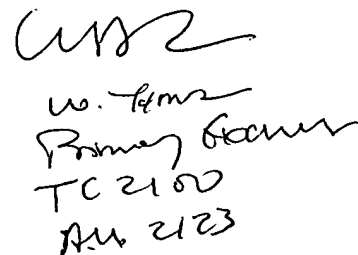 W. Thomas
Primary Examiner
TC 2100
A.U. 2123